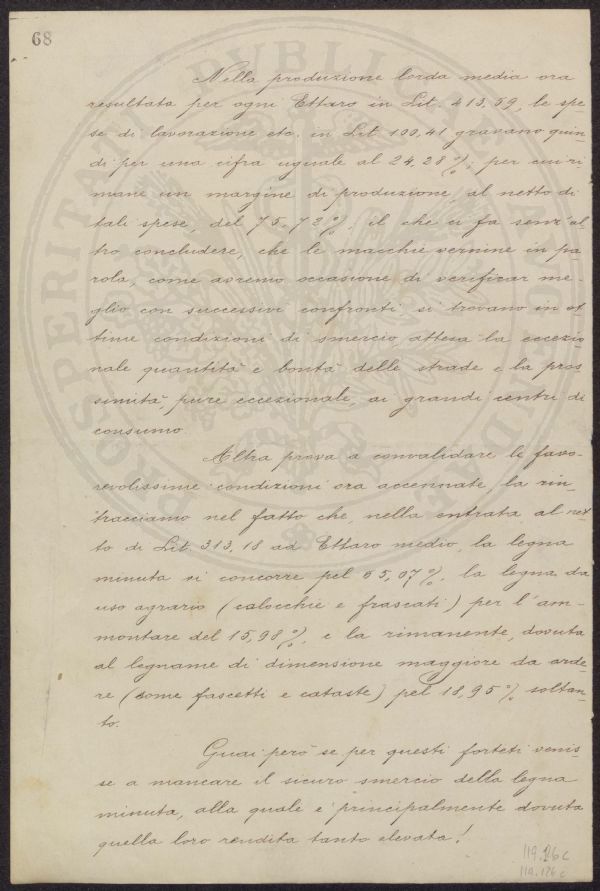 68
Nella produzione lorda media ora
resultata per ogni Ettaro in Lit. 413,59, le spe-
se di lavorazione etc. in Lit 100,41 gravano quin-
di per una cifra uguale al 24,28 %; per cui ri-
mane un margine di produzione, al netto di
tali spese, del 75,72 %, il che ci fa senz'al-
tro concludere, che le macchie vernine in pa
rola, come avremo occasione di verificar me-
glio con successivi confronti, si trovano in ot
time condizioni di smercio, attesa la eccezio
nale quantità e bontà delle strade e la pros
simità, pure eccezionale ai grandi centri di
consumo
Altra prova a convalidare le favo-
revolissime condizioni ora accennate, la rin-
tracciamo nel fatto che, nella entrata al net
to di Lit. 313,18 ad Ettaro medio, la legna
minuta vi concorre pel 65,07 %, la legna da
uso agrario (calocchie e frascati) per l'am-
montare del 15,98 %, e la rimanente, dovuta
al legname di dimensione maggiore da arde-
re (some fascetti e cataste) pel 18,95 % soltan-
to.
Guai però se per questi forteti venis-
se a mancare il sicuro smercio della legna
minuta, alla quale è principalmente dovuta
quella loro rendita tanto elevata!
119.126 c
119.126 c
PROSPERITATI PVBLICAE